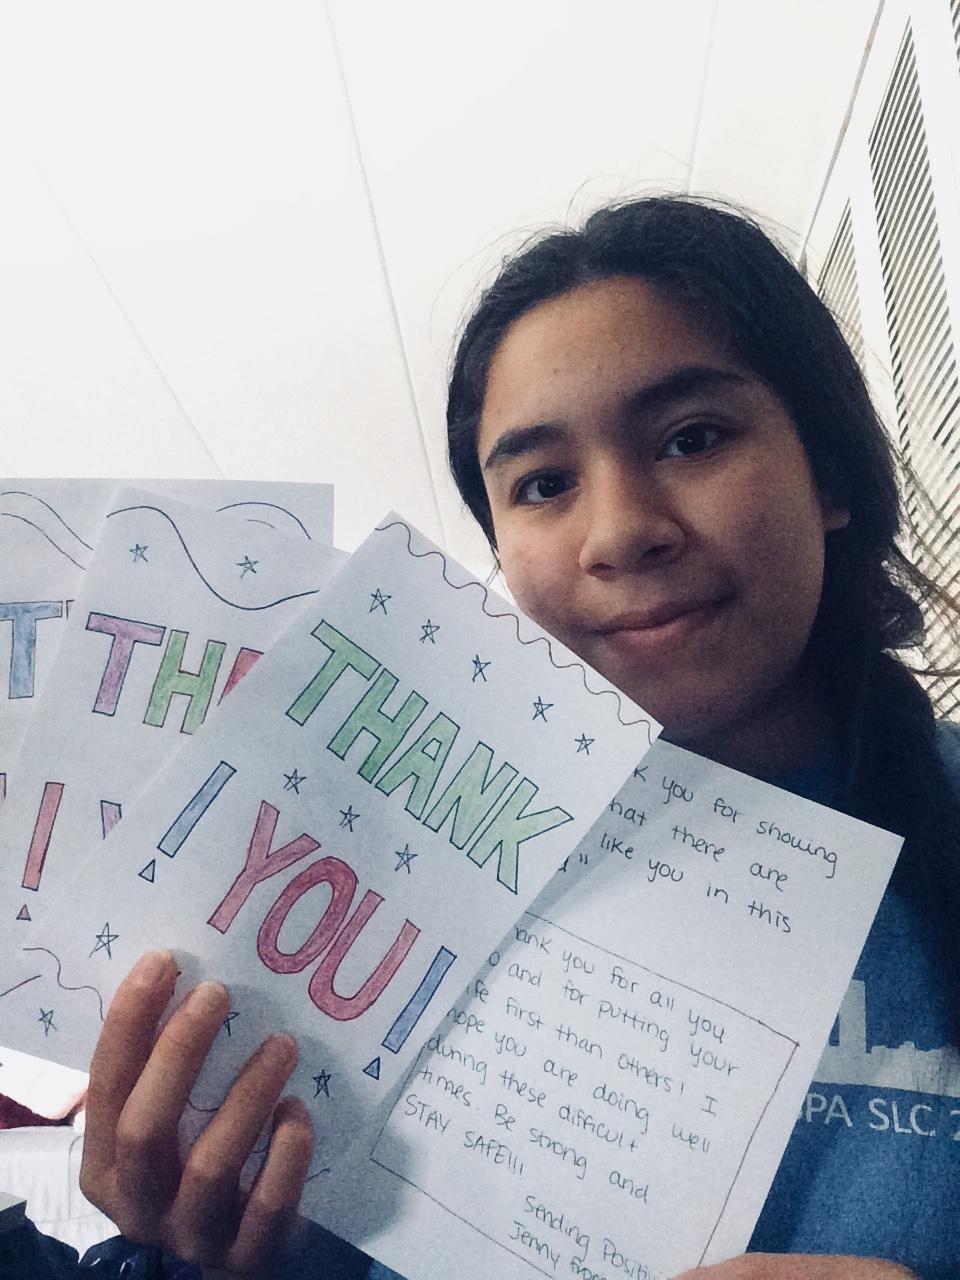 T
!
TH
!
THANK
YOU!
K you for showing
hat there are
like you in this
ank you for all you
o and for putting your
fe first than others! I
hope you are doing well
during these difficult
times. Be strong and
STAY SAFE!!!
Sending Positiv
Jenny
PA SLC 2